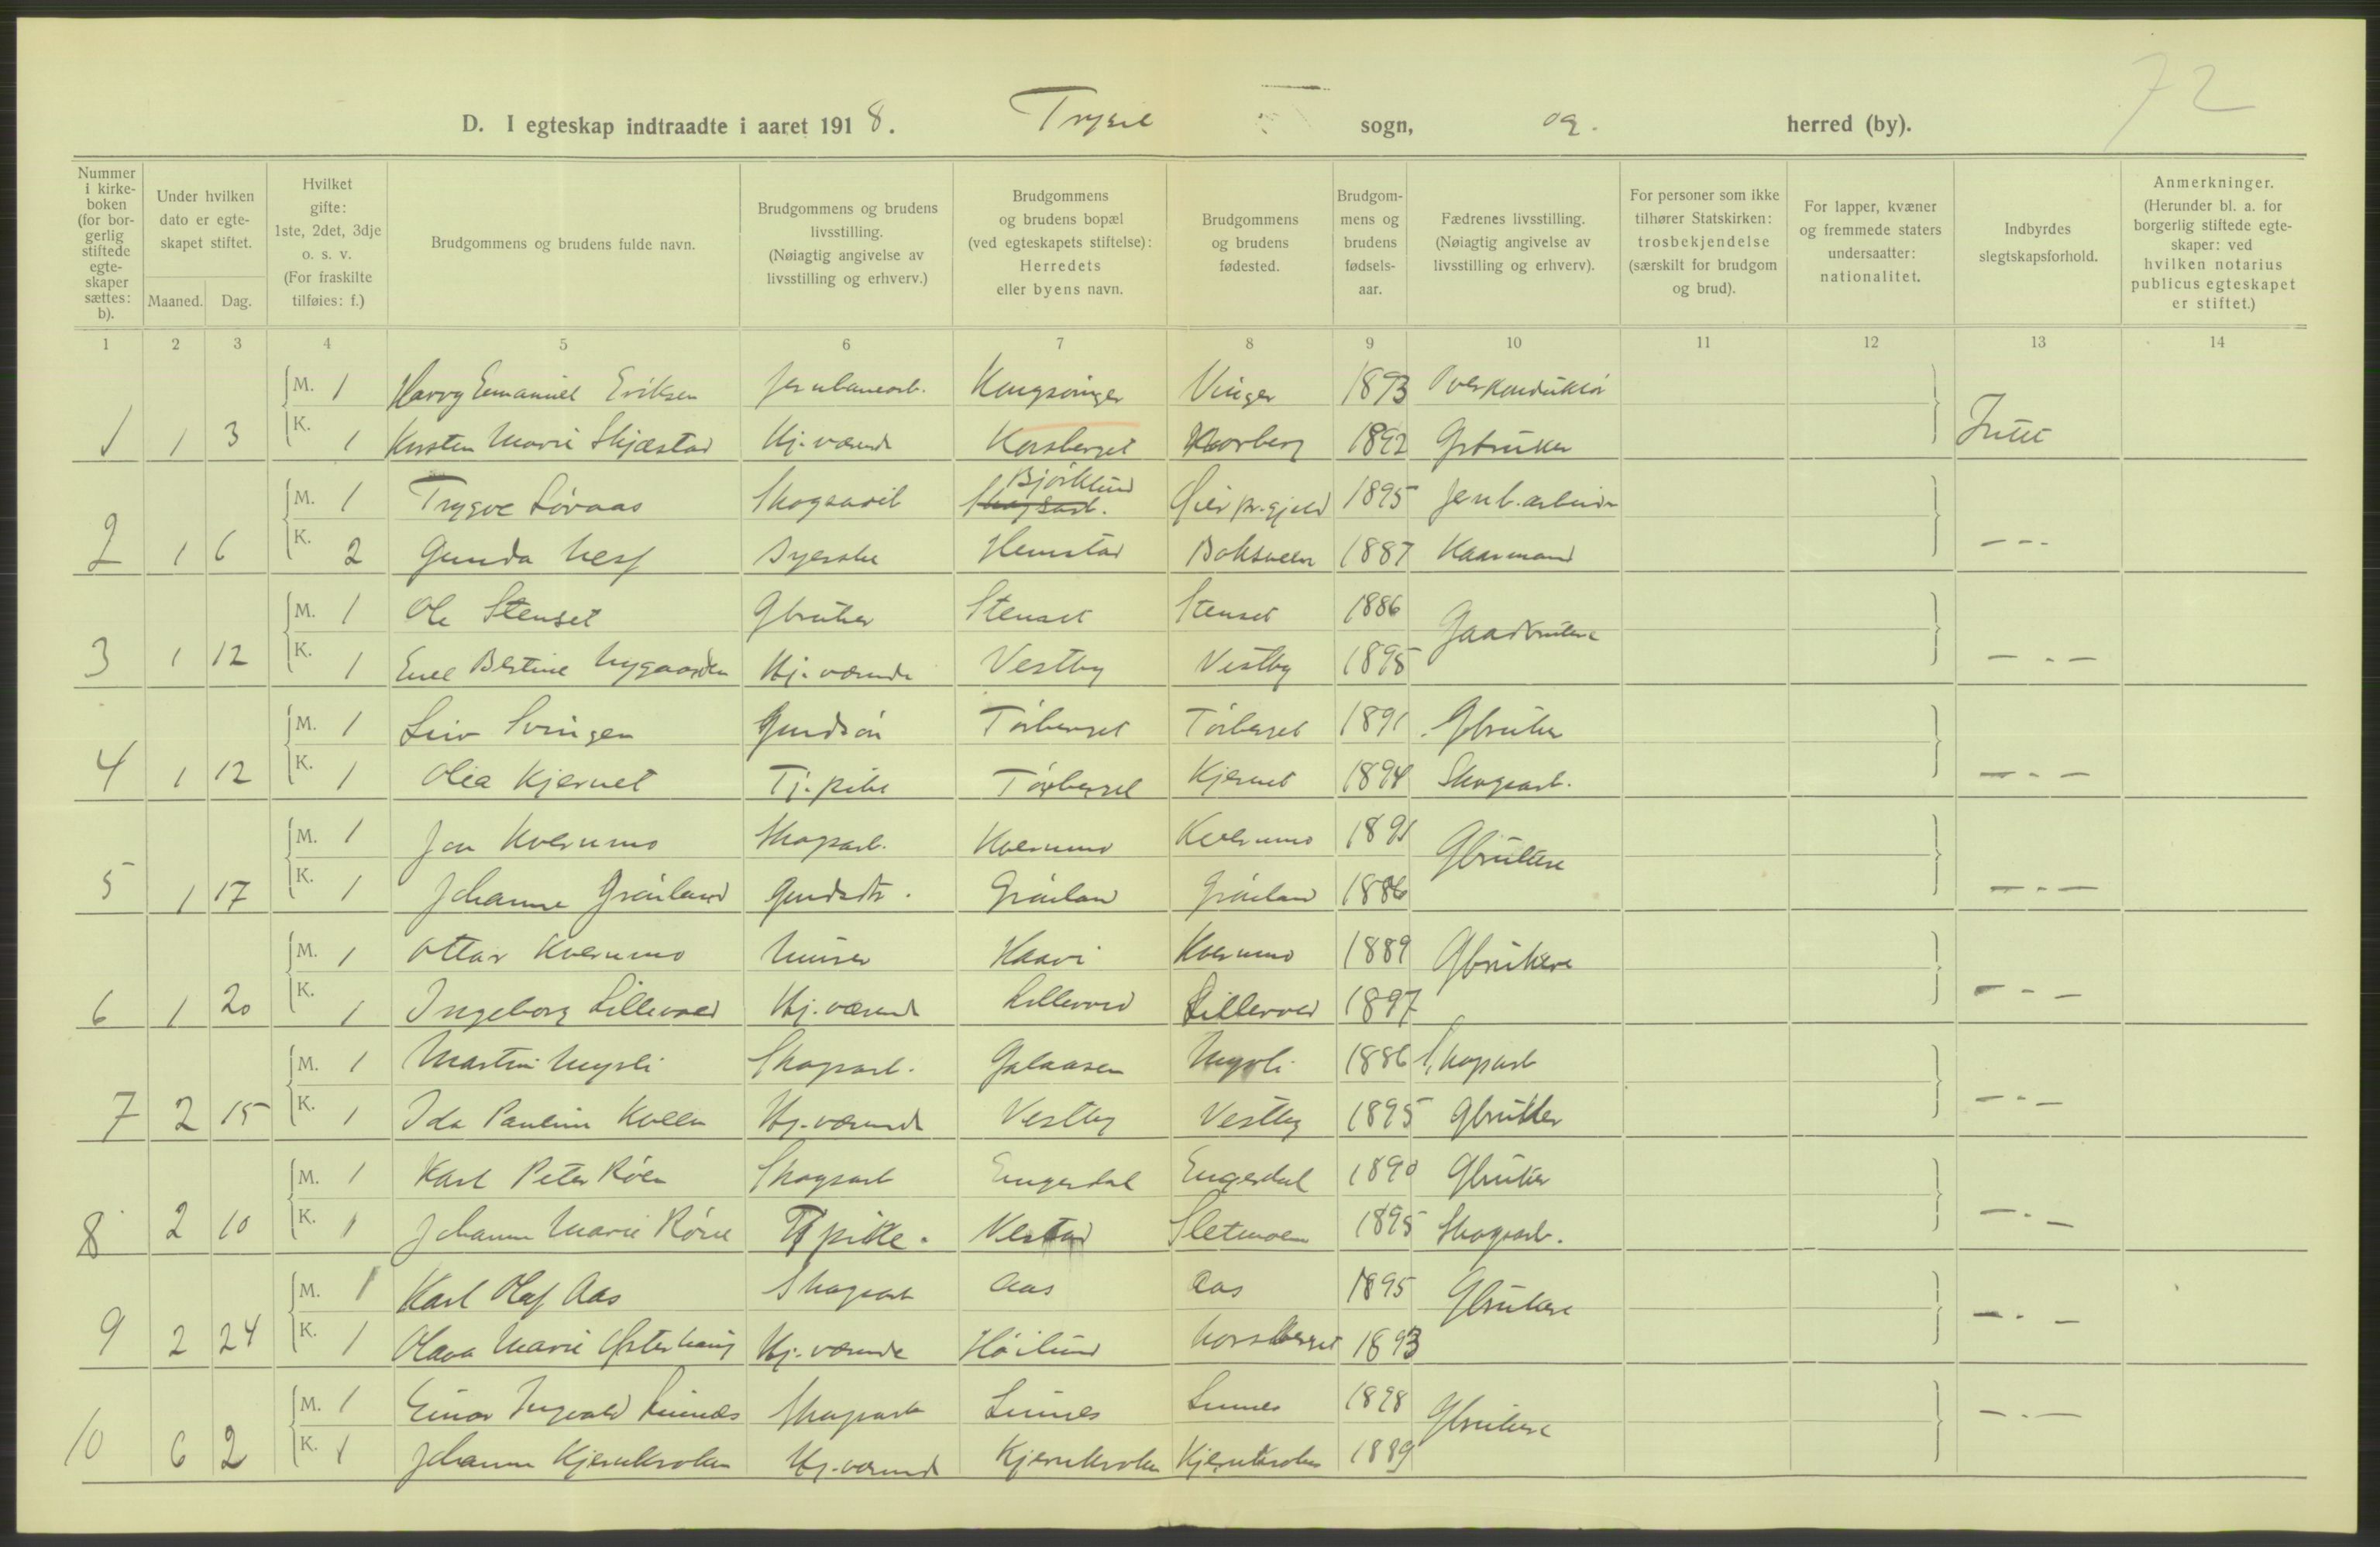 72
D. I egteskap indtraadte i aaret 1918. Trysil sogn, og. herred (by).
Nummer i kirkeboken (for borgerlig stiftede egteskaper sættes: b).
Under hvilken dato er egteskapet stiftet.
Maaned. Dag.
Hvilket gifte: 1ste, 2det, 3dje o. s. v. (For fraskilte tilføies: f.)
Brudgommens og brudens fulde navn.
Brudgommens og brudens livsstilling. (Nøiagtig angivelse av livsstilling og erhverv.)
Brudgommens og brudens bopæl (ved egteskapets stiftelse): Herredets eller byens navn.
Brudgommens og brudens fødested.
Brudgommens og brudens fødselsaar.
Fædrenes livsstilling. (Nøiagtig angivelse av livsstilling og erhverv).
For personer som ikke tilhører Statskirken: trosbekjendelse (særskilt for brudgom og brud).
For lapper, kvæner og fremmede staters undersaatter: nationalitet.
Indbyrdes slegtskapsforhold.
Anmerkninger. (Herunder bl. a. for borgerlig stiftede egteskaper: ved hvilken notarius publicus egteskapet er stiftet.)
1 2 3 4 5 6 7 8 9 10 11 12 13 14
M. 1 Harry Emanuel Eriksen Jernbanearb. Kongsvinger Vinger 1893 Overkonduktør
1 1 3 K. 1 Kirsten Marie Skjæstad Hj. værende Korsberget 1892 Gbruker Intet
Bjørklund
M. 1 Trygve Løvaas Skogsarb Skogsarb. 1895 Jernb. arbeider
2 1 6 K. 2 Gunda Syerske Hemstad 1887 - - -
M. 1 Ole Stenset Gbruker Stenset Stenset 1886 Gaardbrukere
3 1 12 K. 1 Bertine Nygaarden Hj. værende Vestby Vestby 1895 - - -
M. 1 Svingen Grndsøn Tørberget Tørberget 1891 Gbruker
4 1 12 K. 1 Olea Kjernet Tj. pike Tørberget Kjernet 1894 Skogsarb. - - -
M. 1 Jon Kvernmo Skogsarb. Kvernmo Kvernmo 1891 Gbrukere
5 1 17 K. 1 Johanne Grønland Grndsdtr. Grønland Grønland 1886 - - -
M. 1 Ottar Kvernmo Murer Haavi Kvernmo 1889 Gbrukere
6 1 20 K. 1 Ingeborg Lillevold Hj. værende Lillevold Lillevold 1897 - - -
M. 1 Martin Mysli Skogsarb. Galaasen Mysli 1886 Skogsarb
7 2 15 K. 1 Ida Pauline Kollen Hj. værende Vestby Vestby 1895 Gbruker - - -
M. 1 Karl Peter Røen Skogsarb Engerdal Engerdal 1890 Gbruker
8 2 10 K. 1 Johanne Marie Tj pike. Sletmoen 1895 Skogsarb. - - -
M. 1 Karl Olaf Aas Skogsarb Aas Aas 1895 Gbrukere
9 2 24 K. 1 Olava Marie Østerhaug Hj. værende Høilund Korsberget 1893 - - -
M. 1 Einar Ingvald Lunnes Skogsarb Lunnes Lunnes 1898 Gbrukere
10 6 2 K. 1 Johanne Kjernkroken Hj. værende Kjernkroken Kjernkroken 1889 - - -